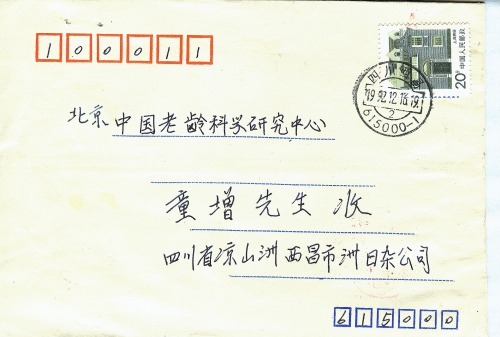 100011
中国人民邮政
20分
四川西昌
1992.12.16.19
2
615000-1
北京 中国老龄科学研究中心
童增先生收
四川省凉山洲西昌市洲日杂公司
615000